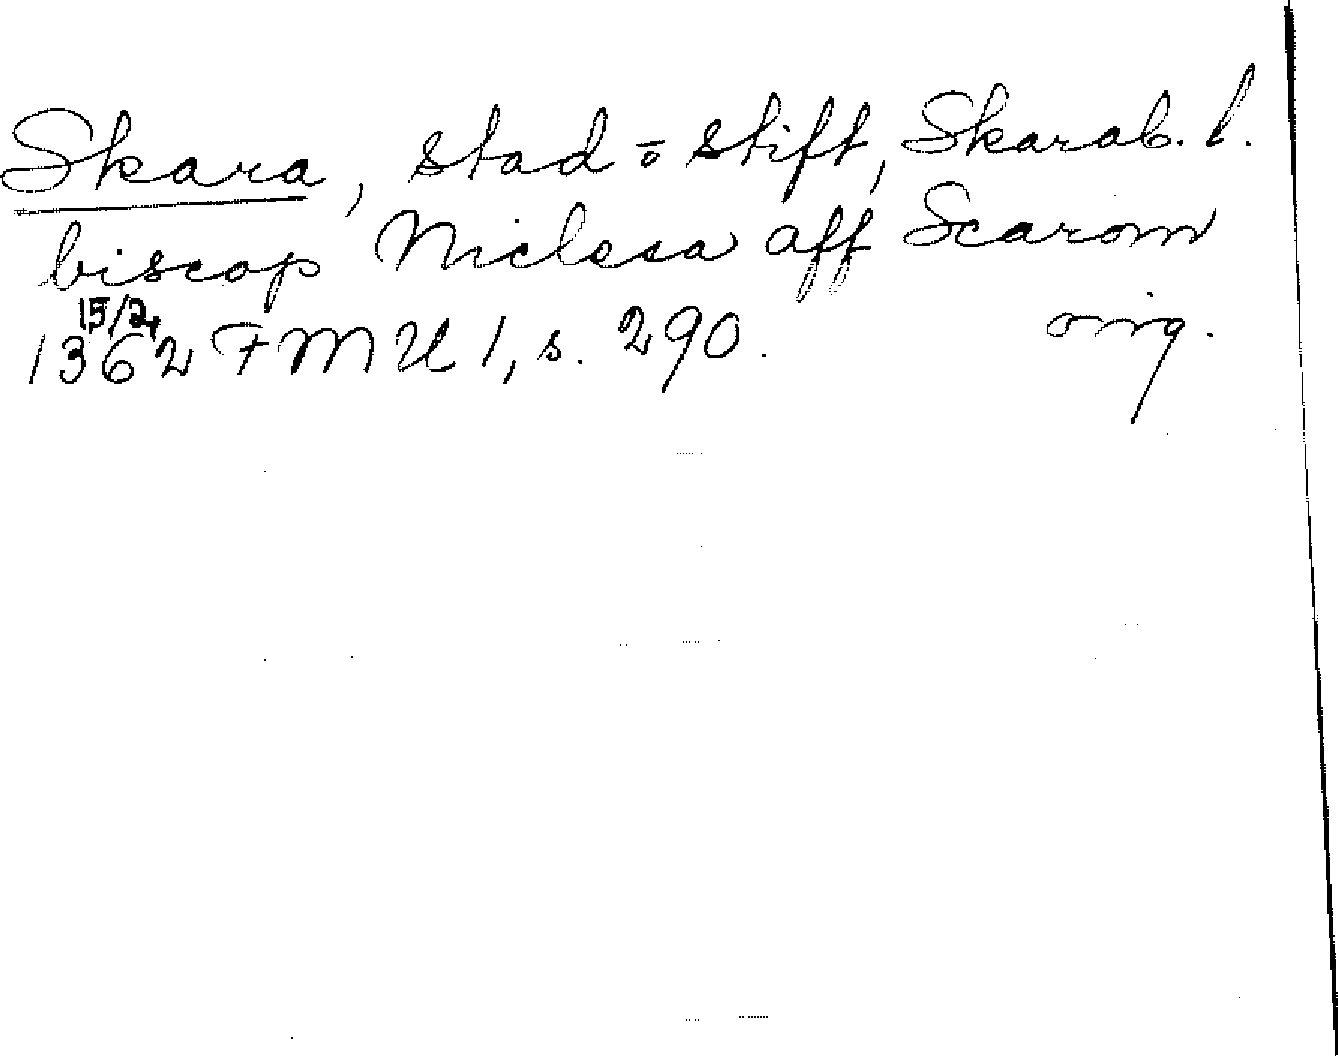 Skara, stad o stift, Skarab. l.
biscop Niclesa aff Scarom
15/2
1362 FMU 1, s. 290. orig.